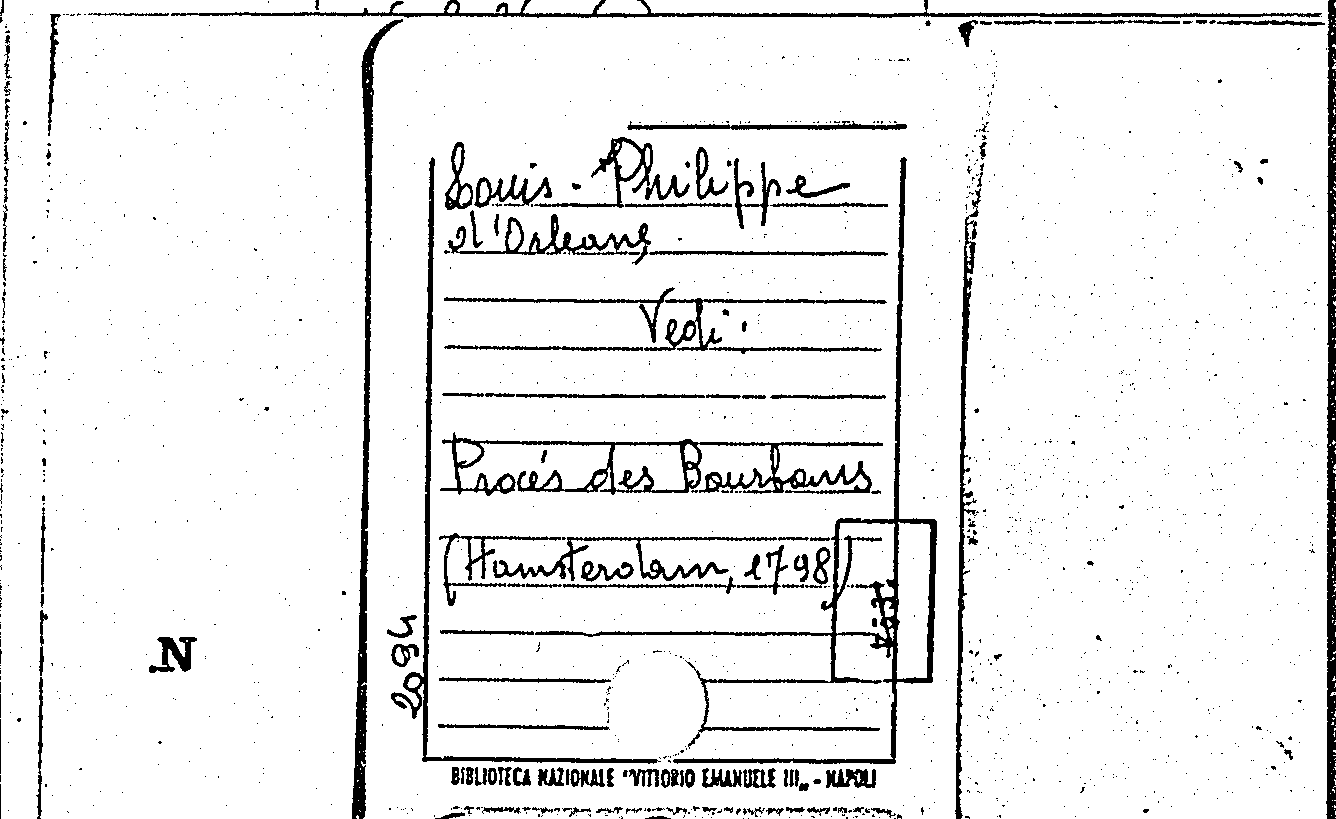 Louis-Philippe
d'Orleans,
Vedi:
Procés des Bourbons
(Hamsterdam, 1798)
2094
N
BIBLIOTECA NAZIONALE "VITTORIO EMANUELE III" - NAPOLI